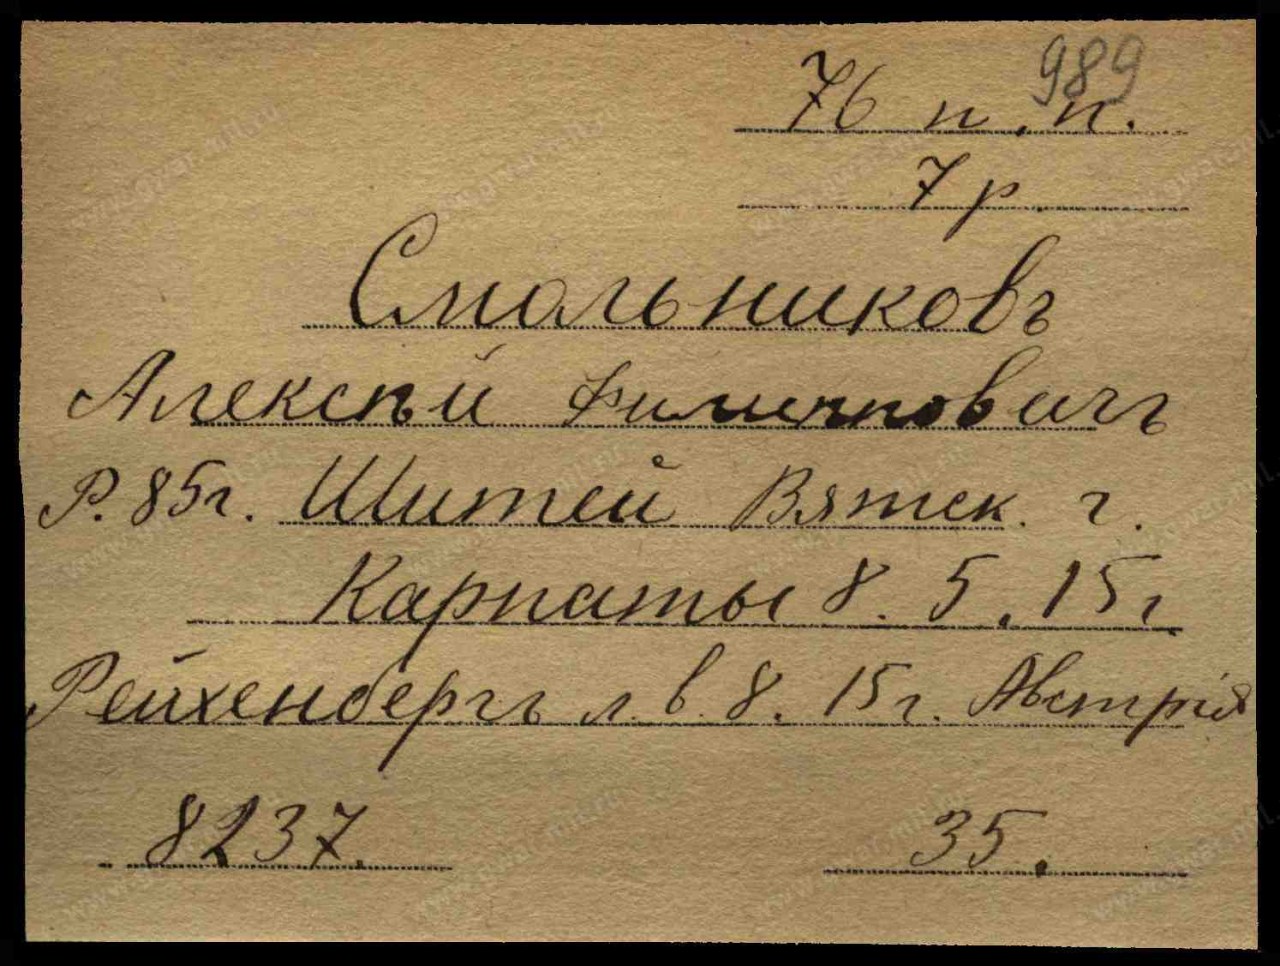 989
76 п. п.
7 р
Смольниковъ
Алексѣй
Р. 85г. Шитей Вятск. г.
Карпаты 8. 5. 15г.
Рейхенбергъ л. в. 8. 15г. Австрія
8237. 35.